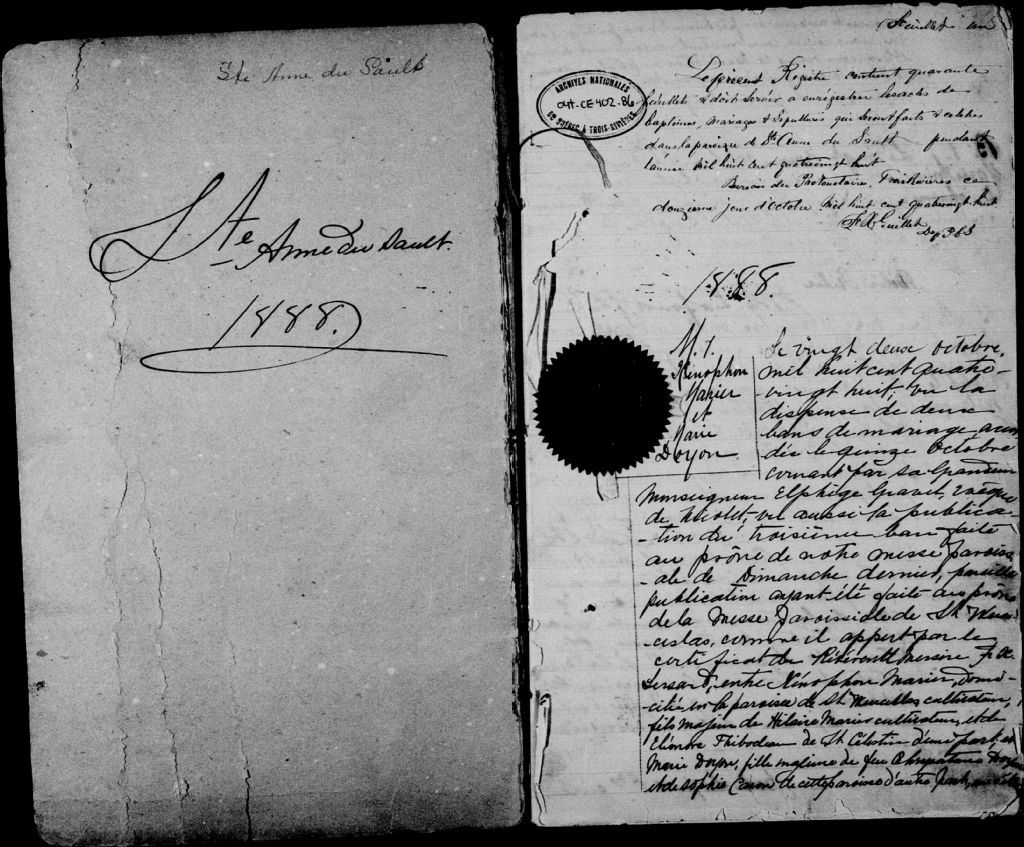 Ste Anne du Sault
Ste Anne du Sault.
1888.
feuillet un
Le présent Registre contient quarante
feuillets & doit servir a enrégistrer les actes de
Baptêmes, Mariages & Sepultures qui seront faits et célébrés
dans la paroisse de Ste Anne du Sault pendant
l'année mil huit cent quatrevingt huit
Bureau du Protonotaire, Trois Rivières ce
douzieme jour d'Octobre mil huit cent quatrevingt huit
ARCHIVES NATIONALES
04-CE402-86
DU QUÉBEC À TROIS-RIVIÈRES
Guillet
1888.
M. 1.
Xénophon
Marier
et
Marie
Doyon
Le vingt deux octobre,
mil huit cent quatre-
-vingt huit, vu la
dispense de deux
bans de mariage
dée le quinze Octobre
courant par sa Grandeur
Monseigneur Elphège Gravel, évêque
de Nicolet, vu aussi la publica-
-tion du troisième ban faite
au prône de notre messe paroissi-
ale de Dimanche dernier, pareille
publication ayant été faite au prône
de la Messe Paroissiale de St Wen-
ceslas, comme il appert par le
certificat du Révérend Messire
entre Xénophon Marier, domi-
-cilié en la paroisse de St Wenceslas cultivateur,
fils majeur de Hilaire Marier cultivateur, et de
Eléonore Thibodeau de St Célestin d'une part; et
Marie Doyon, fille majeure de feu Doyon
et de Sophie Caron de cette paroisse d'autre part,